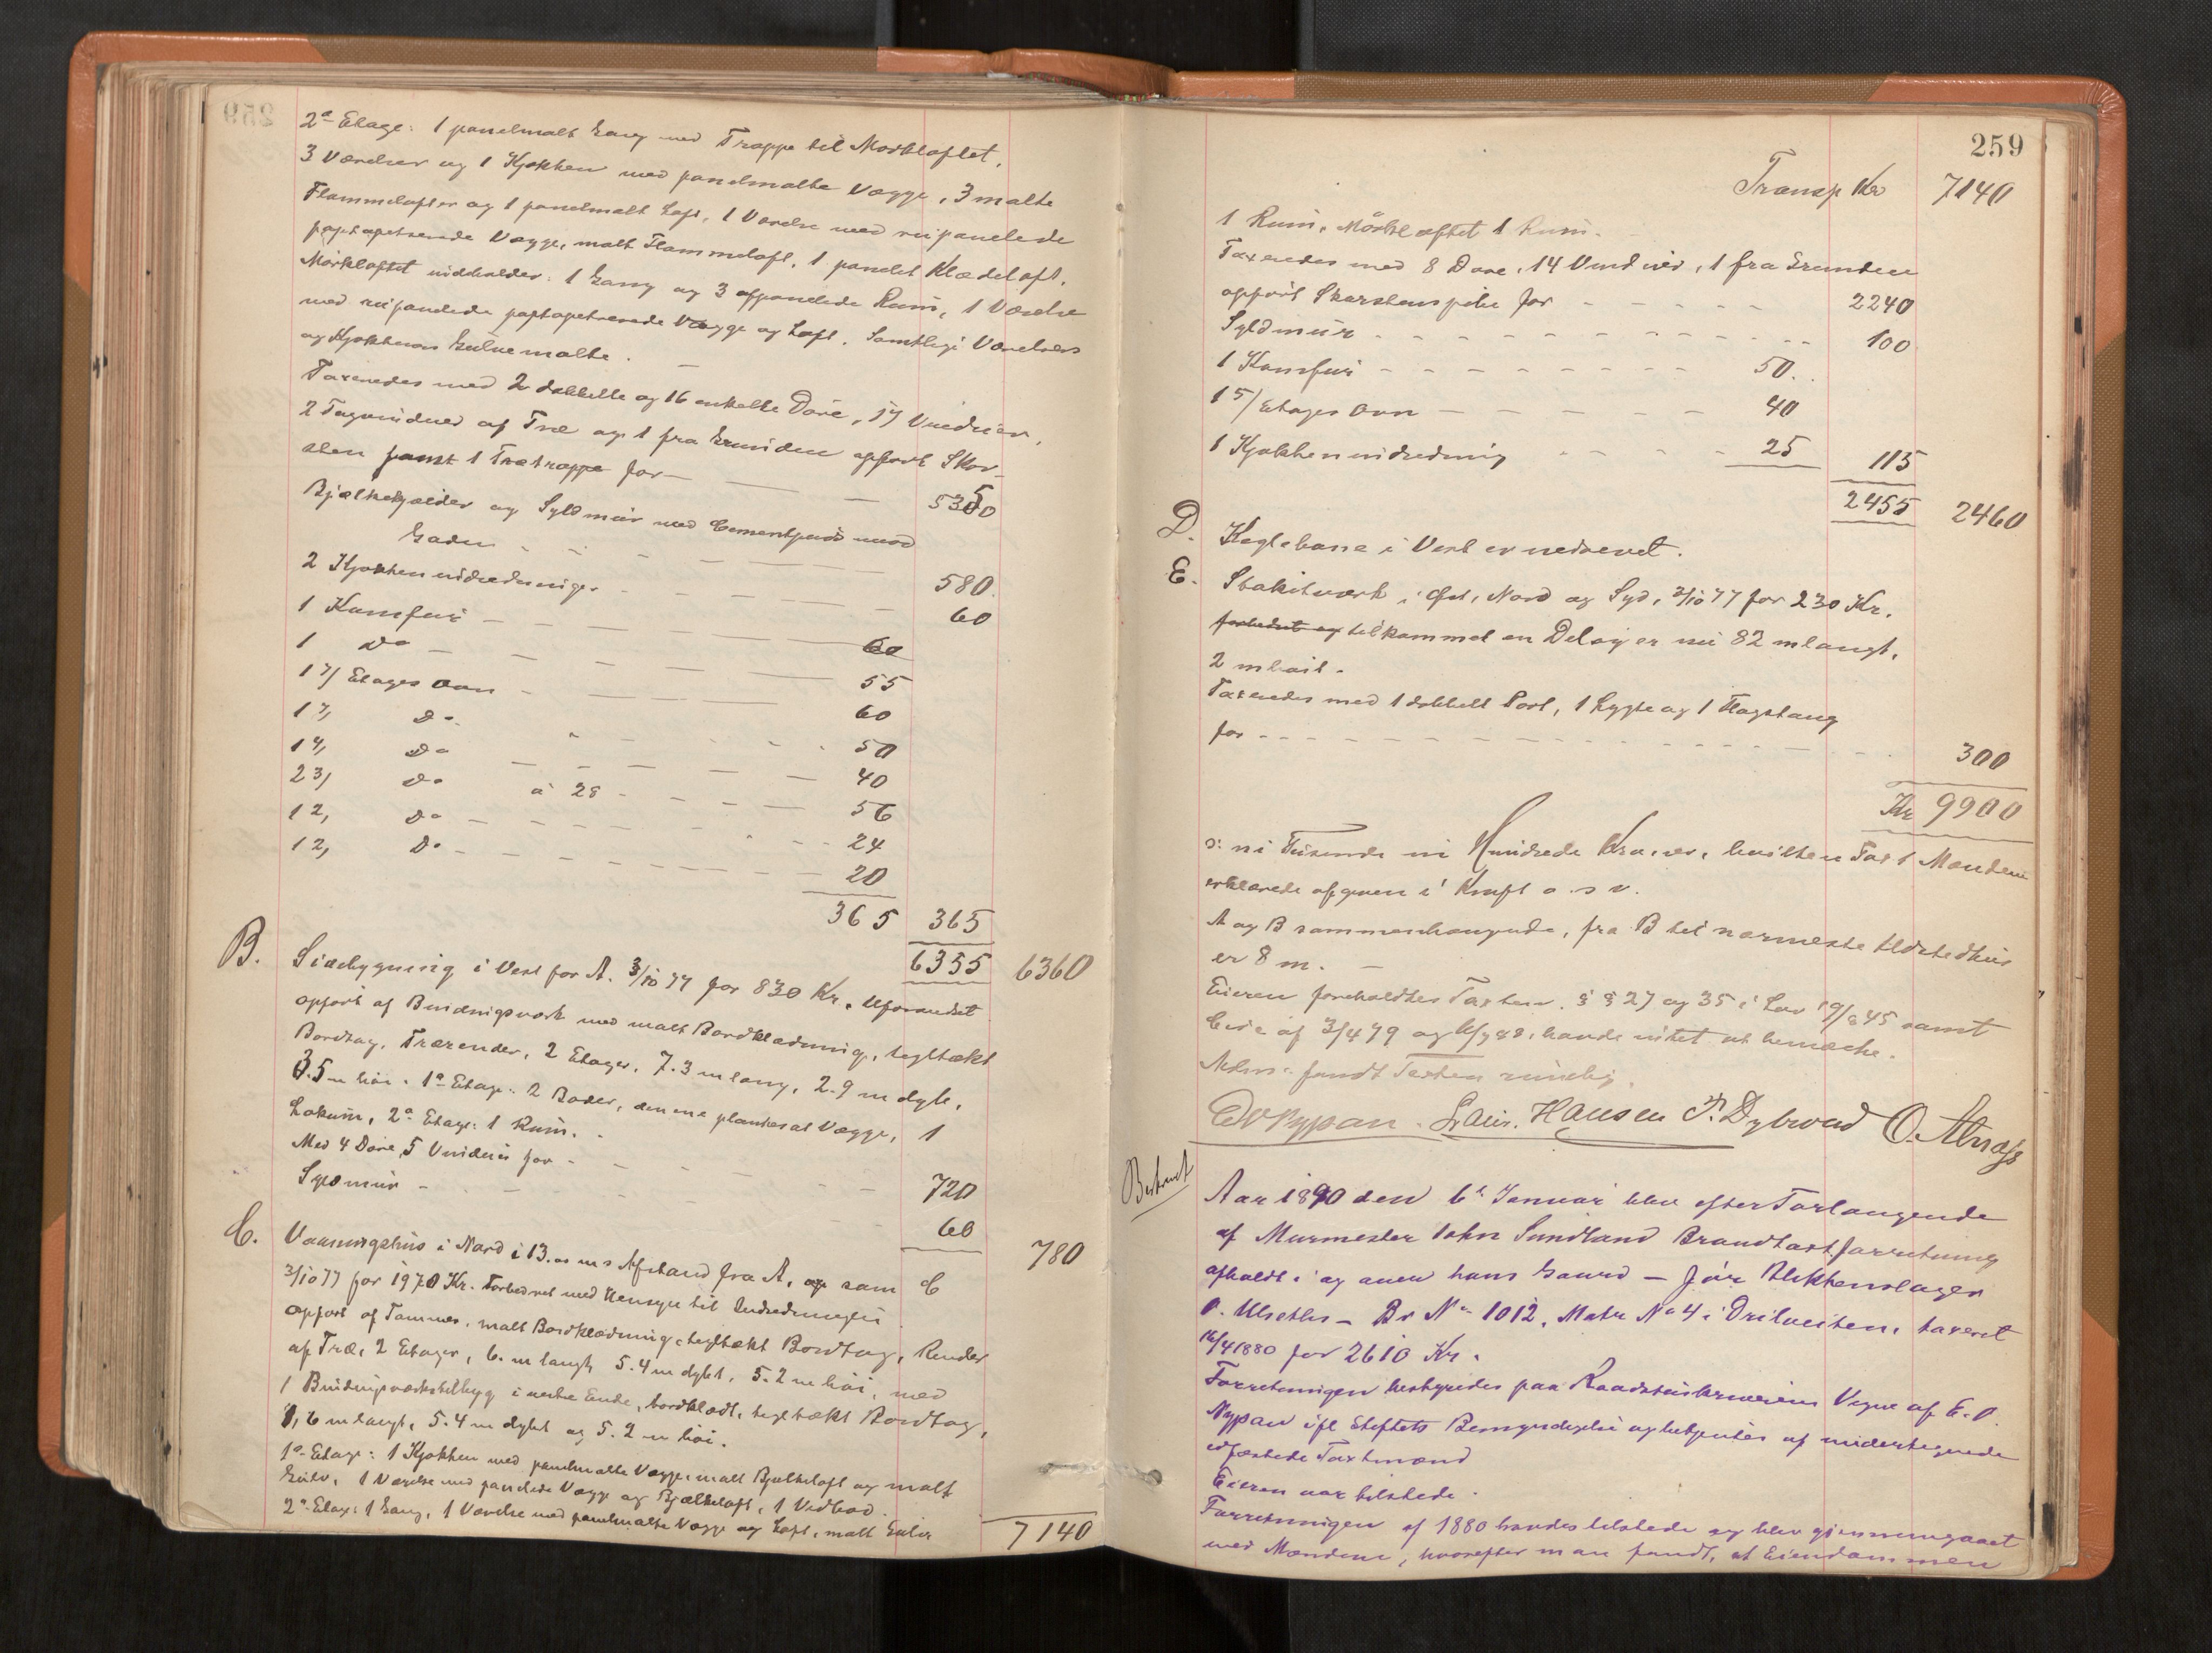 2a Etage: 1 panelmalt Gang med Trappe til Mørkloftet,
3 Værelser og 1 Kjøkken med panelmalte Vægge, 3 malte
Flammelofter og 1 panelmalt Loft, 1 Værelse med rupanelede
paptapetserede Vægge, malt Flammeloft, 1 panelet Klædeloft.
Mørkloftet indeholder: 1 Gang og 3 afpanelede Rum, 1 Værelse
med rupanelede paptapetserede Vægge og Loft. Samtlige Værelsers
og Kjøkkeners Gulve malte.
Taxeredes med 2 dobbelte og 16 enkelte Døre, 17 Vinduer,
2 Tagvinduer af Træ og 1 fra Grunden opført Skor-
sten samt 1 Trætrappe for 5350
Bjælkekjælder og Syldmur med Cementpuds mod
Gaden 580.
2 Kjøkkenindredninger 60
1 Komfur 60
1 Do 55
1 7/ Etages Ovn 60
1 7/ Do 50
1 4/ Do 40
2 3/ Do à 28 56
1 2/ Do 24
1 2/ Do 20
365 365
6355 6360
B. Sidebygning i Vest for A. 3/10 77 for 830 Kr. Uforandret
opført af Bindingsværk med malt Bordklædning, tegltækt
Bordtag, Trærender, 2 Etager, 7.3 m lang, 2.9 m dyb,
3.5 m høi. 1a Etage: 2 Boder, den ene plankesat Vægge, 1
Lokum, 2a Etage: 1 Rum.
Med 4 Døre, 5 Vinduer for 720
Syldmur 60
780
C. Vaaningshus i Nord i 13. m s Afstand fra A, som C
3/10 77 for 1970 Kr. Forbedret med Hensyn til Indredningen
opført af Tømmer, malt Bordklædning, tegltækt Bordtag, Render
af Træ, 2 Etager, 6. m langt, 5.4 m dybt, 5.2 m høi, med
1 Bindingsværkstilbyg i vestre Ende, bordklædt, tegltækt Bordtag,
1,6 m langt, 5.4 m dybt og 5.2 m høi.
1a Etage: 1 Kjøkken med panelmalte Vægge, malt Bjælkeloft og malt
Gulv, 1 Værelse med panelede Vægge og Bjælkeloft, 1 Vedbod.
2a Etage: 1 Gang, 1 Værelse med panelmalte Vægge og Loft, malt Gulv
7140
259
Transp Kr 7140
1 Rum, Mørkloftet 1 Rum.
Taxeredes med 8 Døre, 14 Vinduer, 1 fra Grunden
opført Skorstenspibe for 2240
Syldmur 100
1 Komfur 50.
1 5/ Etages Ovn 40
1 Kjøkkenindredning 25 115
2455 2460
D. Keglebane i Vest er nedrevet.
E. Stakitværk i Øst, Nord og Syd, 3/10 77 for 230 Kr.
forbedret og tilkommet en Del og er nu 82 m langt,
2 m høit.
Taxeredes med 1 dobbelt Port, 1 Lygte og 1 Flagstang
for 300
Kr 9900
ɔ: ni Tusinde ni Hundrede Kroner, hvilken Taxt Mændene
erklærede afgiven i Kraft o.s.v.
A og B sammenhængende, fra B til nærmeste Ildstedhus
er 8 m. —
Eieren foreholdtes Taxten. §§ 27 og 35 i Lov 19/8 45 samt
Circ. af 3/4 79 og havde intet at bemærke.
Adm. fandt Taxten rimelig.
E O Nypan. Laur. Hansen P. Dybvad O. Alnæs
Beskrevet
Aar 1890 den 6te Januar blev efter Forlangende
af Murmester John Sundland Brandtaxtforretning
afholdt i og over hans Gaard — før Blikkenslager
O. Ulseths — Br No 1012, Matr No 4 i Ørilveiten, taxeret
16/4 1880 for 2610 Kr.
Forretningen bestyredes paa Raadstueskriverens Vegne af E. O.
Nypan ifl Stiftets Bemyndigelse og betjentes af undertegnede
edfæstede Taxtmænd
Eieren var tilstede.
Forretningen af 1880 havdes tilstede og blev gjennemgaaet
med Mændene, hvorefter man fandt, at Eiendommen